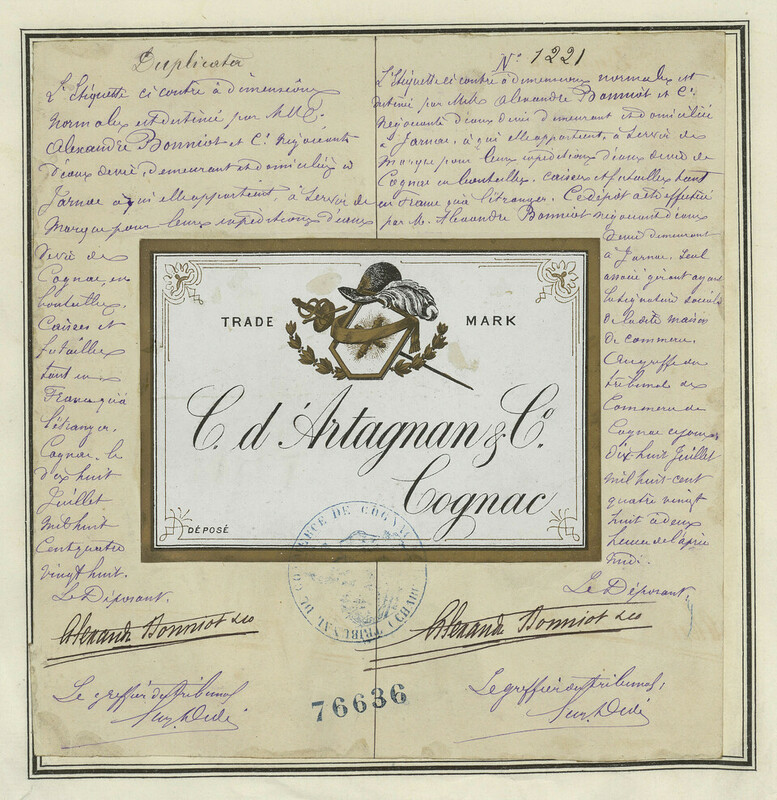 Duplicata
L'Etiquette ci contre à dimensions
normales est destiné par MM.
Alexandre Bonniot et Cie. Négociants
d'eaux de vie, demeurant et domiciliés à
Jarnac à qui elle appartient, à servir de
Marque pour leurs expéditions d'eaux
de vie de
Cognac, en
bouteilles,
Caisses et
futailles
tant en
France qu'à
l'étranger.
Cognac, le
dix huit
Juillet
mil huit
Cent quatre
vingt huit.
Le Déposant.
Alexandre Bonniot & Co
Le greffier du tribunal
No 1221
L'Etiquette ci contre à dimensions normales est
destiné par MM. Alexandre Bonniot et Cie.
Négociants d'eaux de vie demeurant et domiciliés
à Jarnac, à qui elle appartient, à servir de
Marque pour leurs expéditions d'eaux de vie de
Cognac en bouteilles, caisses et futailles tant
en France qu'à l'étranger. Ce dépôt a été effectué
par M. Alexandre Bonniot négociant d'eaux
de vie demeurant
à Jarnac, seul
associé gérant ayant
la signature sociale
de la dite maison
de commerce.
Au greffe du
tribunal de
Commerce de
Cognac ce jour
dix huit Juillet
mil huit-cent
quatre vingt
huit à deux
heures de l'après
midi.
Le Déposant,
Alexandre Bonniot & Co
Le greffier du tribunal,
TRADE MARK
C. d'Artagnan & Co.
Cognac
DÉPOSÉ
TRIBUNAL DE COMMERCE DE COGNAC
76636